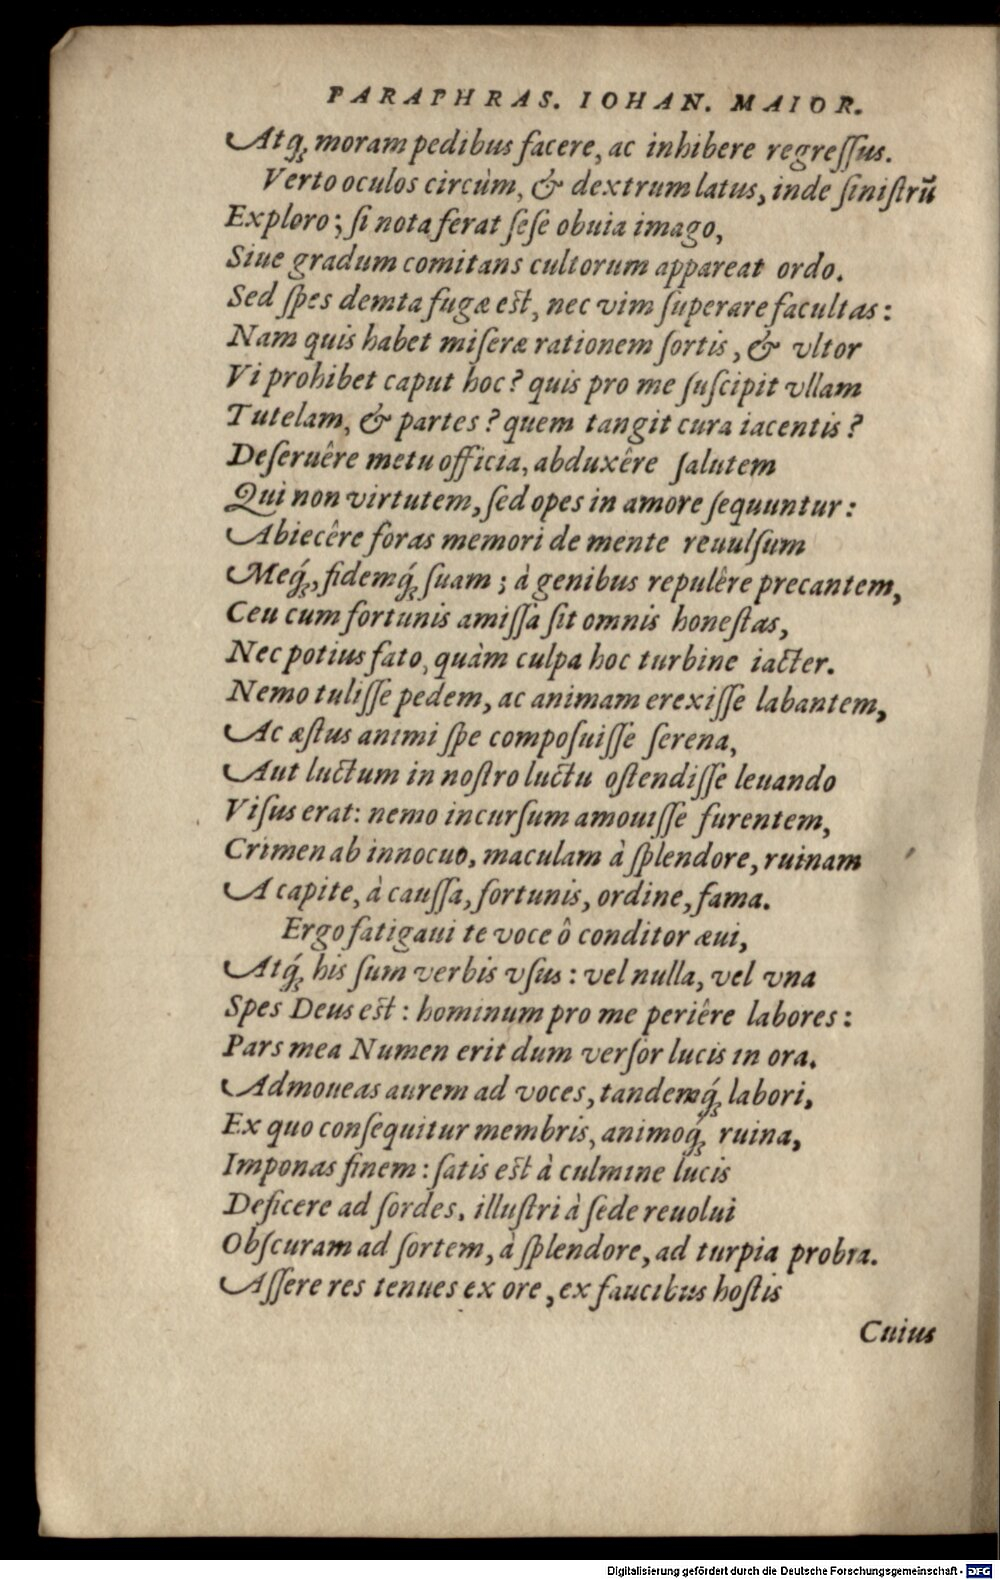 PARAPHRAS. IOHAN. MAIOR.
Atq́; moram pedibus facere, ac inhibere regreſſus.
Verto oculos circùm, & dextrum latus, inde ſiniſtrū
Exploro; ſi nota ferat ſeſe obuia imago,
Siue gradum comitans cultorum appareat ordo.
Sed ſpes demta fugæ est, nec vim ſuperare facultas:
Nam quis habet miſeræ rationem ſortis, & vltor
Vi prohibet caput hoc? quis pro me ſuſcipit vllam
Tutelam, & partes? quem tangit cura iacentis?
Deſeruêre metu officia, abduxêre ſalutem
Qui non virtutem, ſed opes in amore ſequuntur:
Abiecêre foras memori de mente reuulſum
Meq́;, fidemq́; ſuam; à genibus repulêre precantem,
Ceu cum fortunis amiſſa ſit omnis honeſtas,
Nec potius fato, quàm culpa hoc turbine iacter.
Nemo tuliſſe pedem, ac animam erexiſſe labantem,
Ac æſtus animi ſpe compoſuiſſe ſerena,
Aut luctum in noſtro luctu oſtendiſſe leuando
Viſus erat: nemo incurſum amouiſſe furentem,
Crimen ab innocuo, maculam à ſplendore, ruinam
A capite, à cauſſa, fortunis, ordine, fama.
Ergo fatigaui te voce ô conditor æui,
Atq́; his ſum verbis vſus: vel nulla, vel vna
Spes Deus est: hominum pro me periêre labores:
Pars mea Numen erit dum verſor lucis in ora.
Admoueas aurem ad voces, tandemq́; labori,
Ex quo conſequitur membris, animoq́; ruina,
Imponas finem: ſatis est à culmine lucis
Deficere ad ſordes, illuſtri à ſede reuolui
Obſcuram ad ſortem, à ſplendore, ad turpia probra.
Aſſere res tenues ex ore, ex faucibus hoſtis
Cuius
Digitalisierung gefördert durch die Deutsche Forschungsgemeinschaft - DFG